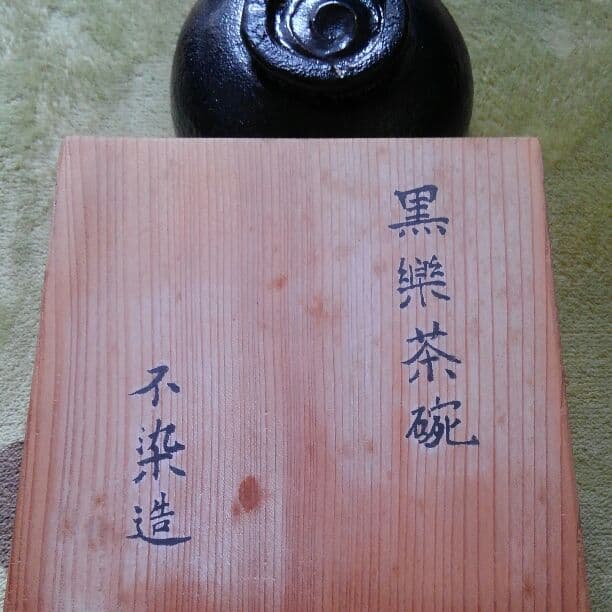 黒樂茶碗
不染造